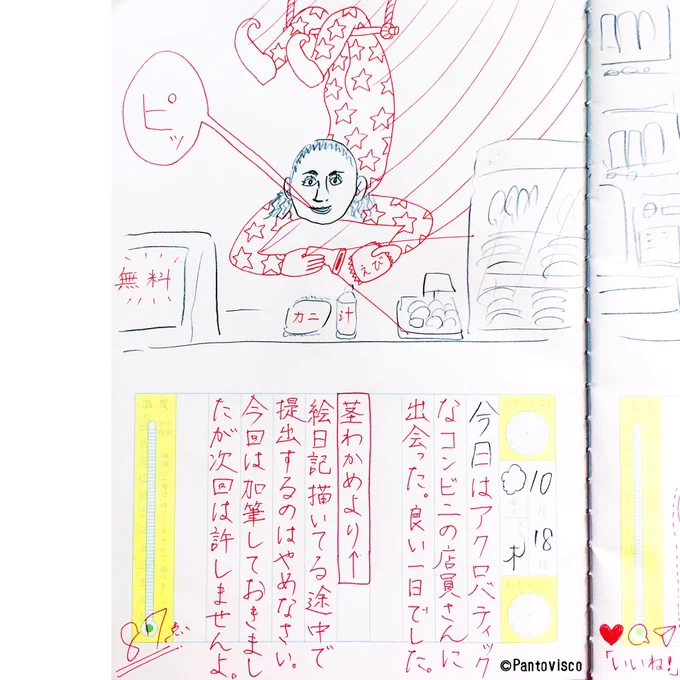 ピッ
無料
カニ
汁
えび
10
18
木
今日はアクロバティック
なコンビニの店員さんに
出会った。良い一日でした。
茎わかめより↑
絵日記描いてる途中で
提出するのはやめなさい。
今回は加筆しておきまし
たが次回は許しませんよ。
温度
87点
©Pantovisco
「いいね!」